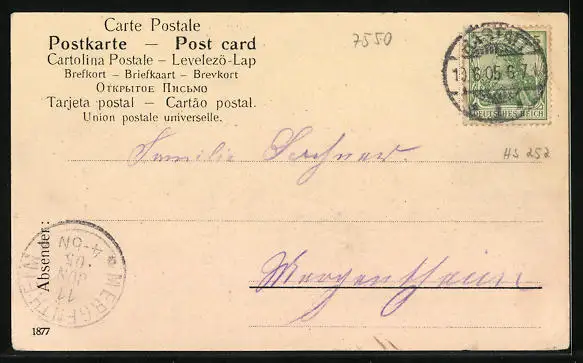 Carte Postale
Postkarte — Post card
Cartolina Postale – Levelező-Lap
Brefkort – Briefkaart – Brevkort
Открытое Письмо
Tarjeta postal – Cartão postal.
Union postale universelle.
7550
RASTATT
10.6.05.6-7
DEUTSCHES REICH
Familie
HS 252
Absender:
MERGENTHEIM
11
JUN
05
4-6N
Mergentheim
1877